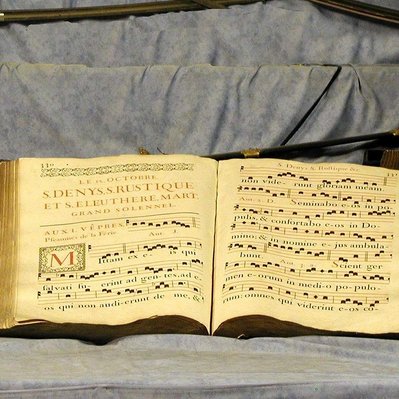 LE IX OCTOBRE
S. DENYS, S. RUSTIQUE
ET S. ELEUTHERE, MART.
GRAND SOLENNEL
AUX I. VÊPRES
Pseaumes de la Férie Ant. I.
MIttam ex e- is qui
salvati fu- erint ad gentes, ad e-
os qui non audi-erunt de me, &
S. Denys, S. Rustique &c.
non vide- runt gloriam meam.
Seminabo eos in po-
pulis, & confortabo e-os in Do-
mino; & in nomine e-jus ambula-
bunt. Scient ger-
men e-orum in medi-o populo-
rum: omnes qui viderint e-os co-